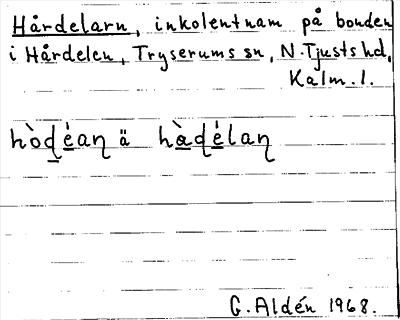 Hårdelarn, inkolentnam på bonden
i Hårdelen, Tryserums sn, N. Tjusts hd,
Kalm. l.
hòḏé̱aɳ ä hà̱ḏé̱laɳ
G. Aldén 1968.